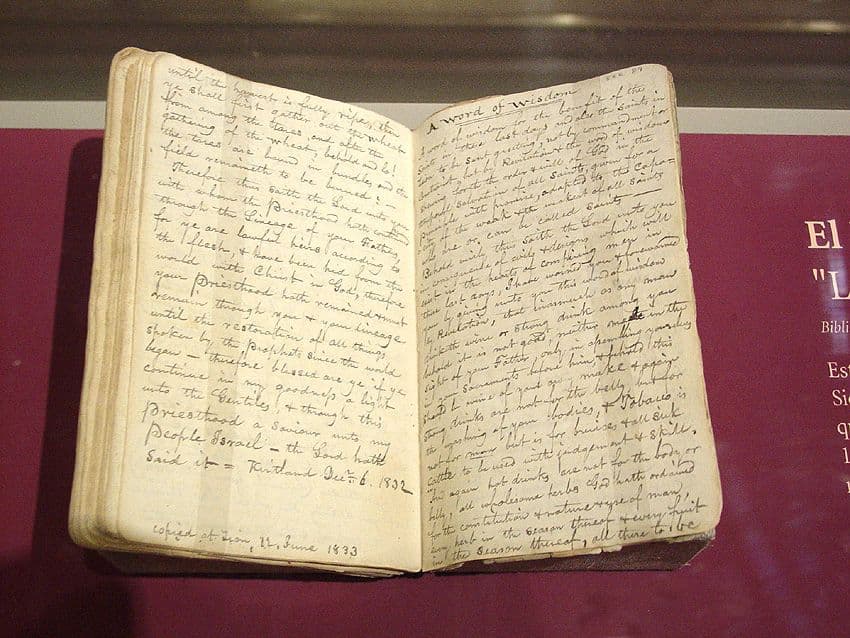 until the harvest is fully ripe, then
ye shall first gather out the wheat
from among the tares, and after the
gathering of the wheat, behold and lo!
the tares are bound in bundles, and the
field remaineth to be burned:
Therefore thus saith the Lord unto you
with whom the Priesthood hath continued
through the Lineage of your Fathers,
for ye are lawful heirs according to
the flesh, & have been hid from the
world with Christ in God, therefore
your Priesthood hath remained & must
remain through you & your lineage
until the restoration of all things,
spoken by the Prophets since the world
began — therefore blessed are ye if ye
continue in my goodness a light
unto the Gentiles, & through this
Priesthood a Saviour unto my
People Israel — the Lord hath
said it = Kirtland Decr. 6. 1832
copied at Zion, 12. June 1833
sec. 89
A Word of Wisdom
A word of wisdom for the benefit of the
in these last days and also the Saints in
Zion to be Sent greeting, not by commandment or
Constraint but by Revelation & the word of wisdom
Shewing forth the order & will of God in the
temporal Salvation of all Saints, given for a
principle with promise, adapted to the Capa-
city of the weak & the weakest of all Saints
who are or can be called Saints —
Behold verily thus saith the Lord unto you
in consequence of evils & designs which will
exist in the hearts of conspiring men in
these last days, I have warned you & forewarned
you by giving unto you this word of wisdom
by Revelation, that inasmuch as any man
drinketh wine or Strong drink among you
behold it is not good, neither in the
Sight of your Father, only in assembling yourselves
in your Sacraments before him & behold this
should be wine of & again
Strong drinks are not for the belly, but for
the washing of your bodies, & Tobacco is
not for man but is for bruises & all Sick
cattle to be used with judgement & Skill.
And again hot drinks are not for the body or
belly, all wholesome herbs God hath ordained
for the constitution & nature & use of man,
every herb in the Season thereof & every fruit
in the Season thereof, all these to be
El
"L
Bibli
Est
Si
q
1